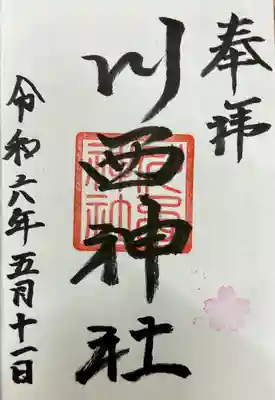 奉拝
川西神社
令和六年五月十一日